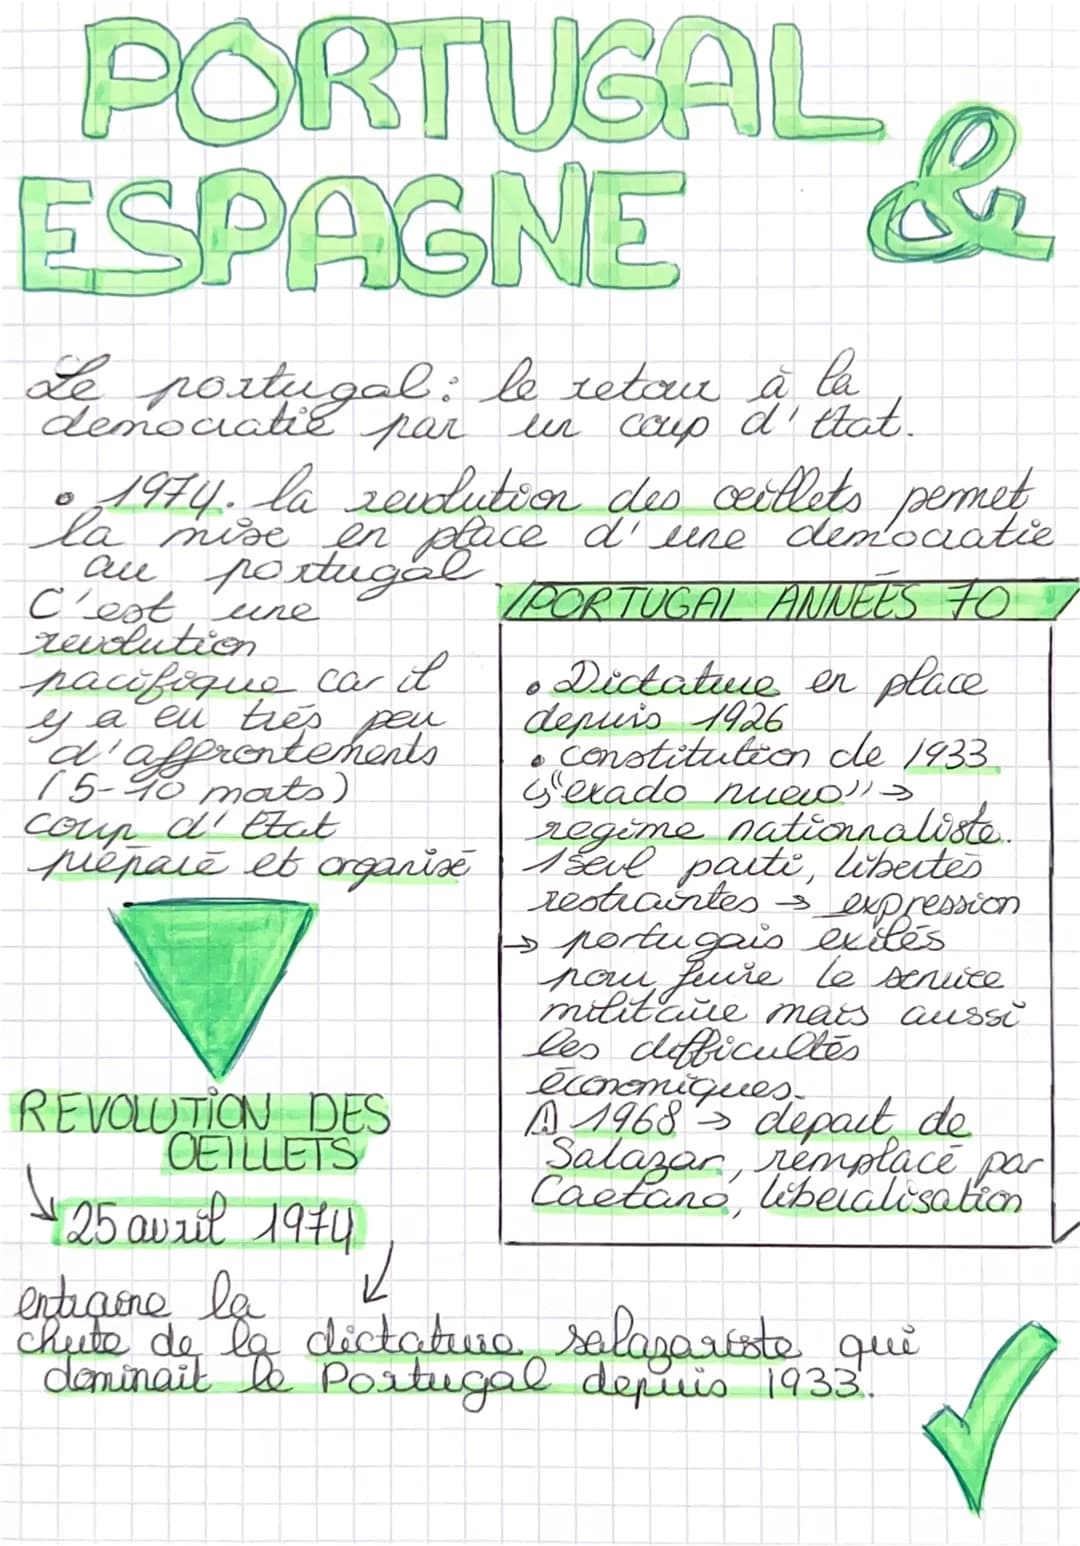 PORTUGAL
&
ESPAGNE
Le portugal : le retour à la
democratie par un coup d'Etat.
• 1974. la revolution des oeillets permet
la mise en place d'une democratie
au portugal
C'est une
revolution
pacifique car il
y a eu très peu
d'affrontements
(5-10 morts)
coup d'Etat
préparé et organisé
REVOLUTION DES
OEILLETS
25 avril 1974
entraine la
chute de la dictature salazariste qui
dominait le Portugal depuis 1933.
PORTUGAL ANNÉES 70
• Dictature en place
depuis 1926
• constitution de 1933
↳ "exado nuevo" →
regime nationnaliste.
1 seul parti, libertés
restraintes → expression
→ portugais exilés
pour fuire le service
militaire mais aussi
les difficultés
économiques.
⚠ 1968 → départ de
Salazar, remplacé par
Caetano, liberalisation